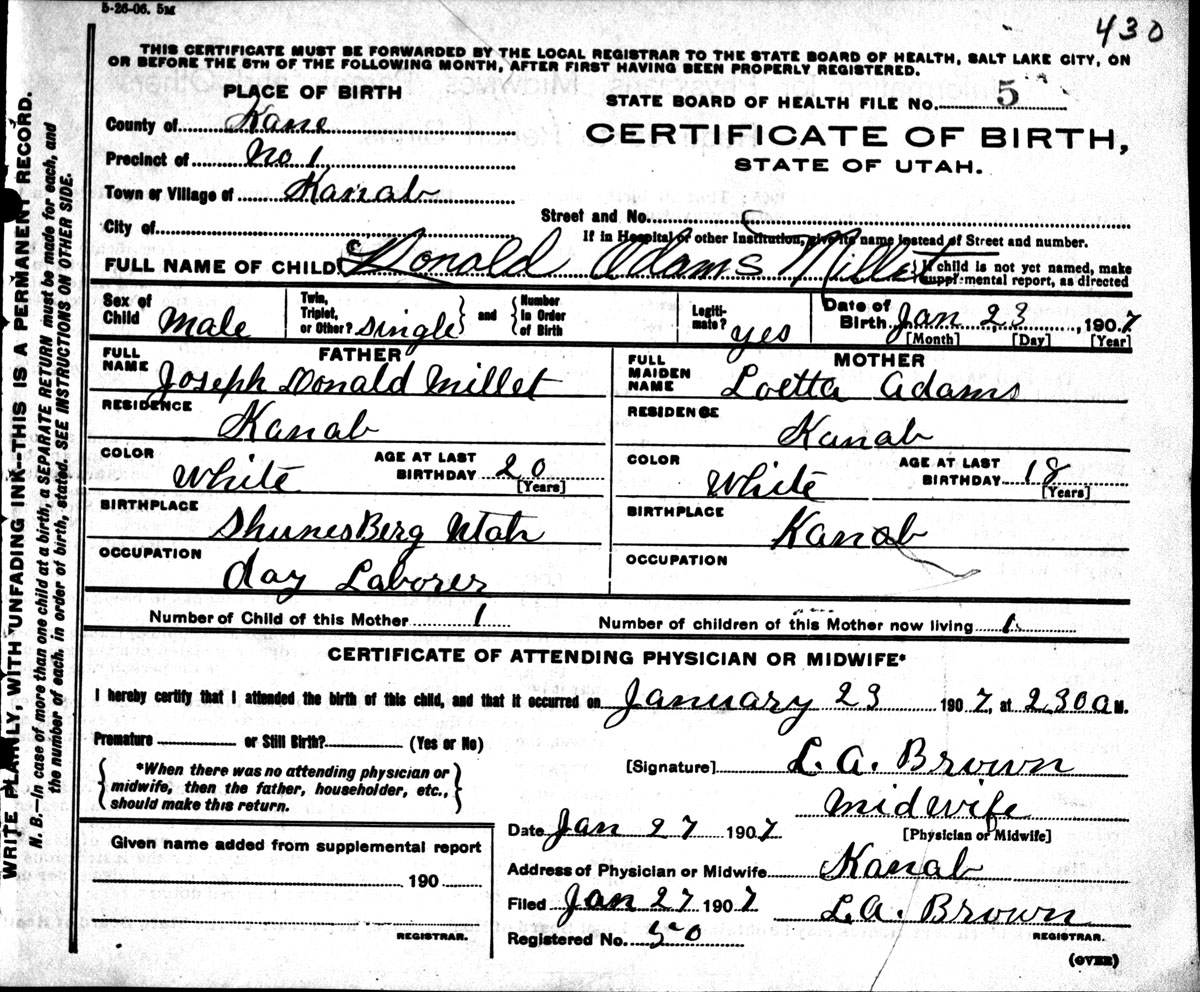 5-26-06. 5M
430
THIS CERTIFICATE MUST BE FORWARDED BY THE LOCAL REGISTRAR TO THE STATE BOARD OF HEALTH, SALT LAKE CITY, ON
OR BEFORE THE 5TH OF THE FOLLOWING MONTH, AFTER FIRST HAVING BEEN PROPERLY REGISTERED.
PLACE OF BIRTH
STATE BOARD OF HEALTH FILE No. 5
County of Kane
CERTIFICATE OF BIRTH,
Precinct of No 1
STATE OF UTAH.
Town or Village of Kanab
Street and No.
City of
If in Hospital or other Institution, give its name instead of Street and number.
FULL NAME OF CHILD Donald Adams Millet
If child is not yet named, make
supplemental report, as directed
Sex of Child Male
Twin, Triplet, or Other? Single } and { Number In Order of Birth
Legitimate? yes
Date of Birth Jan 23, 1907
[Month] [Day] [Year]
FATHER
FULL NAME Joseph Donald Millet
RESIDENCE
Kanab
COLOR White
AGE AT LAST BIRTHDAY 20
[Years]
BIRTHPLACE
ShunesBerg Utah
OCCUPATION
day Laborer
MOTHER
FULL MAIDEN NAME Loetta Adams
RESIDENCE
Kanab
COLOR White
AGE AT LAST BIRTHDAY 18
[Years]
BIRTHPLACE
Kanab
OCCUPATION
Number of Child of this Mother 1
Number of children of this Mother now living 1
CERTIFICATE OF ATTENDING PHYSICIAN OR MIDWIFE*
I hereby certify that I attended the birth of this child, and that it occurred on January 23 1907, at 2.30 a M.
Premature or Still Birth? (Yes or No)
*When there was no attending physician or
midwife, then the father, householder, etc.,
should make this return.
[Signature] L.A. Brown
Midwife
[Physician or Midwife]
Date Jan 27 1907
Address of Physician or Midwife Kanab
Filed Jan 27 1907 L.A. Brown
REGISTRAR.
Registered No. 50
(OVER)
Given name added from supplemental report
190
REGISTRAR.
WRITE PLAINLY, WITH UNFADING INK—THIS IS A PERMANENT RECORD.
N. B.—In case of more than one child at a birth, a SEPARATE RETURN must be made for each, and
the number of each, in order of birth, stated. SEE INSTRUCTIONS ON OTHER SIDE.